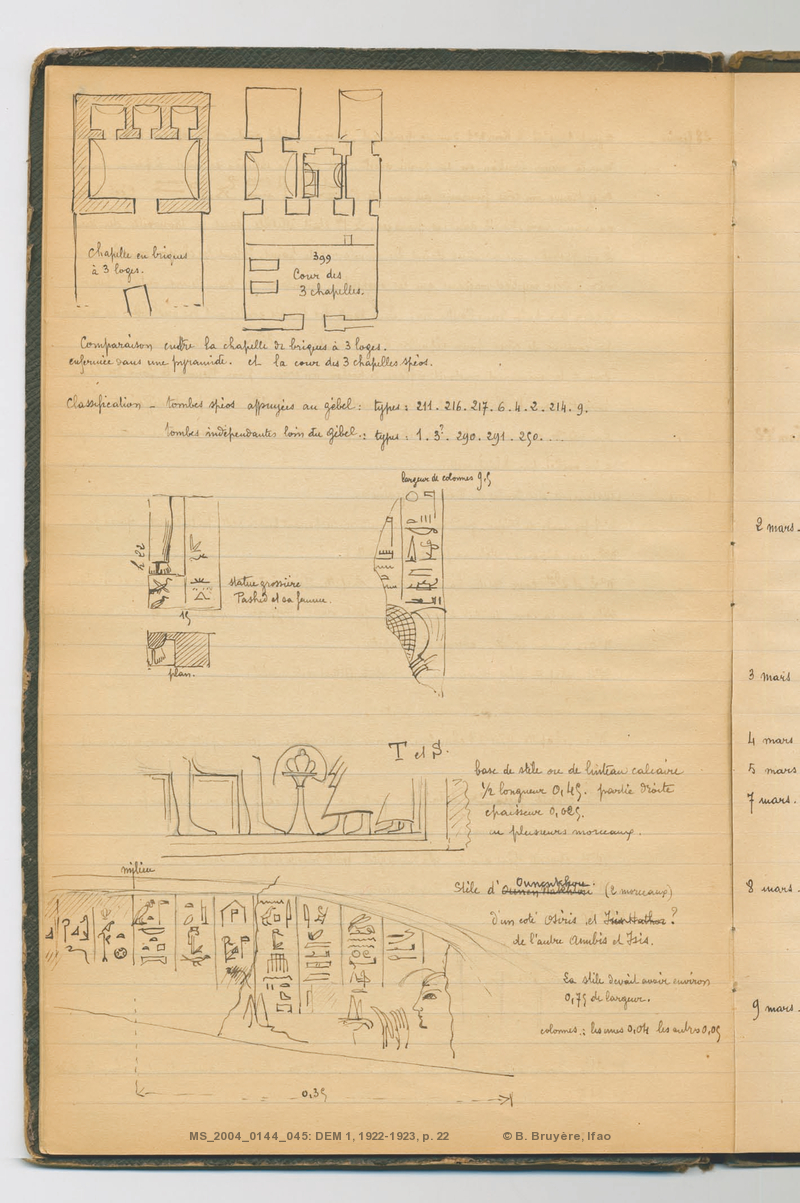 Chapelle en briques
à 3 loges.
399
Cour des
3 chapelles.
Comparaison entre la chapelle de briques à 3 loges.
enfermée dans une pyramide. et la cour des 3 chapelles spéos.
Classification - tombes spéos appuyées au gébel : types : 211. 216. 217. 6. 4. 2. 214. 9.
tombes indépendantes loin du Gébel : types : 1. 3?. 290. 291. 250. ....
largeur de colonnes 9,5
h. 22
statue grossière
Pashed et sa femme.
15
plan.
T et S.
base de stèle ou de linteau calcaire
½ longueur 0,45. partie droite
épaisseur 0,025.
en plusieurs morceaux.
milieu
Stèle d' (2 morceaux)
d'un coté Osiris et ?
de l'autre Anubis et Isis.
La stèle devait avoir environ
0,75 de largeur.
colonnes : les unes 0,04 les autres 0,05
0,35
2 mars.
3 mars
4 mars
5 mars
7 mars.
8 mars.
9 mars.
MS_2004_0144_045: DEM 1, 1922-1923, p. 22 © B. Bruyère, Ifao